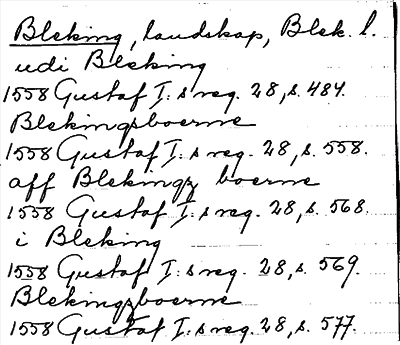 Bleking, landskap, Blek. l.
udi Bleking
1558 Gustaf I:s reg. 28, s. 484.
Blekingsboerne
1558 Gustaf I:s reg. 28, s. 558.
aff Blekingz boerne
1558 Gustaf I:s reg. 28, s. 568.
i Bleking
1558 Gustaf I:s reg. 28, s. 569.
Blekingzboerne
1558 Gustaf I:s reg. 28, s. 577.